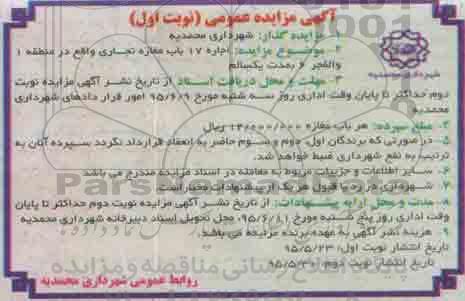 آگهی مزایده عمومی (نوبت اول)
۱- مزایده گذار: شهرداری محمدیه
۲- موضوع مزایده: اجاره ۱۷ باب مغازه تجاری واقع در منطقه ۱
والفجر ۶ بمدت یکسال
۳- مهلت و محل دریافت اسناد از تاریخ نشر آگهی مزایده نوبت
دوم حداکثر تا پایان وقت اداری روز سه شنبه مورخ ۹۵/۶/۹ امور قرار دادهای شهرداری
محمدیه
۴- مبلغ سپرده: هر باب مغازه ۱۲/۰۰۰/۰۰۰ ریال
۵- در صورتی که برندگان اول، دوم و سوم حاضر به انعقاد قرارداد نگردد سپرده آنان به
ترتیب به نفع شهرداری ضبط خواهد شد.
۶- سایر اطلاعات و جزییات مربوط به معامله در اسناد مزایده مندرج می باشد
۷- شهرداری در رد یا قبول هر یک از پیشنهادات مختار است.
۸- مدت و محل ارایه پیشنهادات: از تاریخ نشر آگهی مزایده نوبت دوم حداکثر تا پایان
وقت اداری روز پنج شنبه مورخ ۹۵/۶/۱۱ محل تحویل اسناد دبیرخانه شهرداری محمدیه
۹- هزینه نشر آگهی به عهده برنده مزایده می باشد.
تاریخ انتشار نوبت اول: ۹۵/۵/۲۳
تاریخ انتشار نوبت دوم:
روابط عمومی شهرداری محمدیه
شهرداری محمدیه